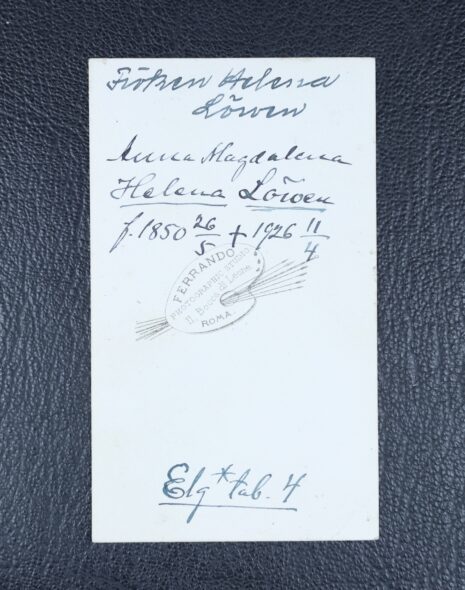 Fröken Helena
Löwen
Anna Magdalena
Helena Löwen
f. 1850 26/5 + 1926 11/4
FERRANDO
PHOTOGRAPHIC STUDIO
11 Bocca di Leone
ROMA.
Elg * tab. 4